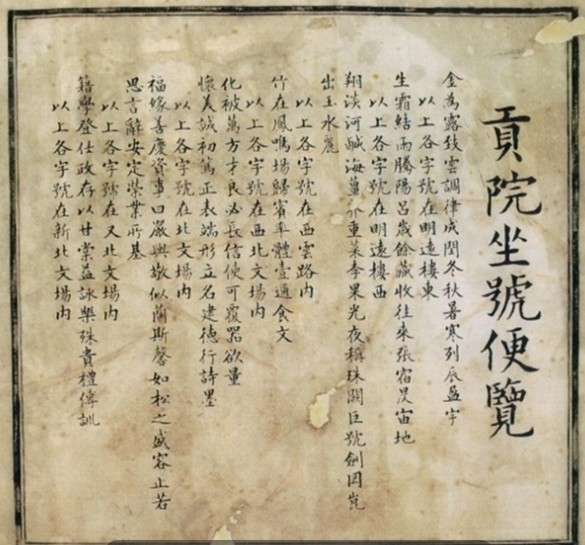 貢院坐號便覽
金為露致雲調律成閏冬秋暑寒列辰盈宇
以上各字號在明遠樓東
生霜結雨騰陽呂歲餘藏收往來張宿昃宙地
以上各字號在明遠樓西
翔淡河鹹海薑介重菜李果光夜稱珠闕巨號劍岡崑
出玉水麗
以上各字號在西雲路内
竹在鳳鳴場歸賓率體壹遐食文
以上各字號在西北文場内
化被萬方才良必長信使可覆器欲量
懷美誠初篤正表端形立名建德行詩墨
以上各字號在北文場内
福緣善慶資事曰嚴與敬似蘭斯馨如松之盛容止若
思言辭安定榮業所基
以上各字號在又北文場内
籍學登仕政存以甘棠益詠樂殊貴禮傅訓
以上各字號在新北文場内